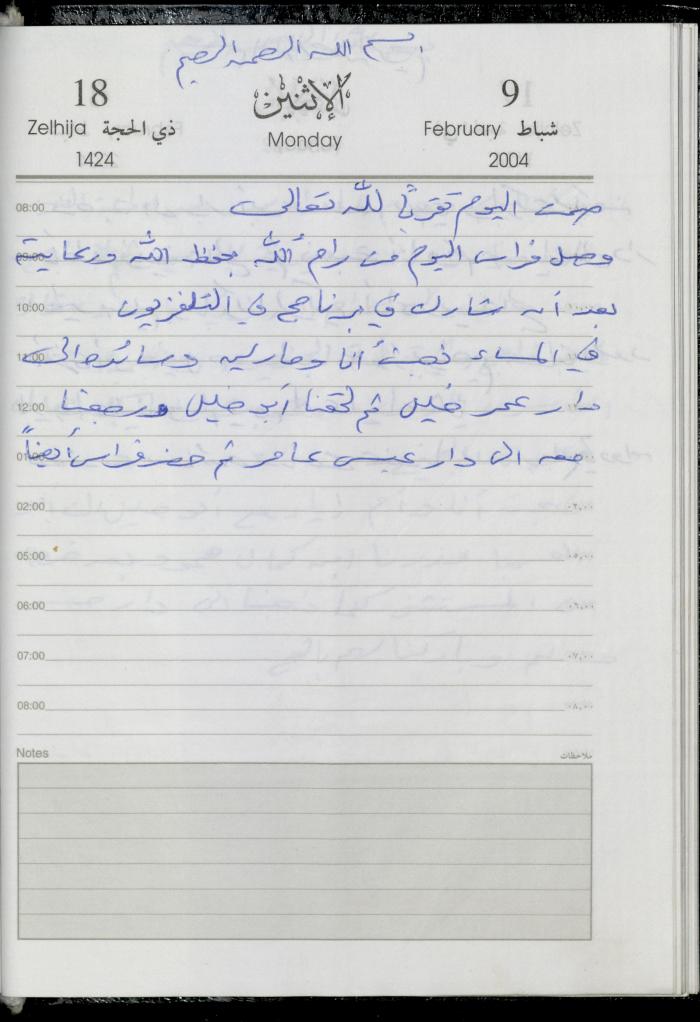 بسم الله الرحمن الرحيم
18 الإثنين 9
Zelhija ذي الحجة Monday February شباط
1424 2004
08:00 صمت اليوم تقرباً لله تعالى
09:00 وصل فراس اليوم من رام ألله بحفظ الله ورعايته
10:00 بعد أن شارك في برنامج في التلفزيون
11:00 في المساء ذهبت أنا ومارلين وسائده الى
12:00 دار عمر خليل ثم لحقنا أبو خليل ورجعنا
01:00 معه الى دار عبسى عامر ثم حضر فراس أيضاً
02:00 ٠٢,٠٠
05:00 ٠٥,٠٠
06:00 ٠٦,٠٠
07:00 ٠٧,٠٠
08:00 ٠٨,٠٠
Notes ملاحظات